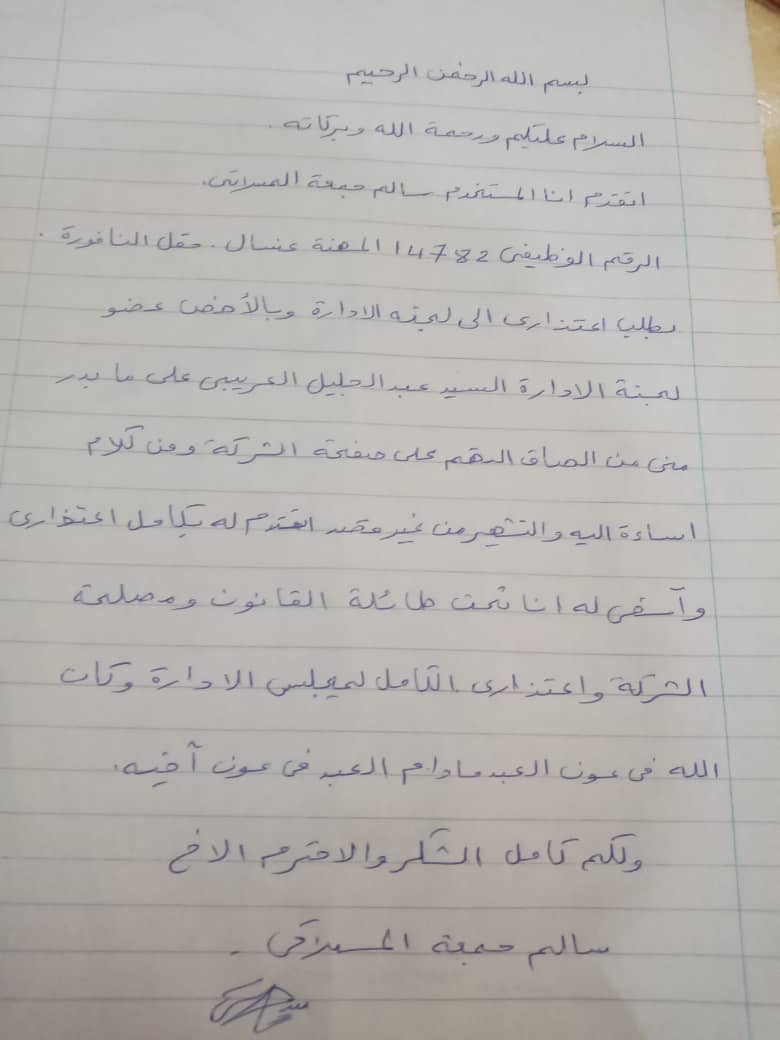 بسم الله الرحمن الرحيم
السلام عليكم ورحمة الله وبركاته .
اتقدم انا المستخدم سالم جمعة المسلاتى .
الرقم الوظيفى 14782 المهنة غسال . حقل النافورة .
بطلب اعتذارى الى لجنه الادارة وبالأخص عضو
لجنة الادارة السيد عبدالجليل العريبى على ما بدر
منى من الصاق التهم على صفحة الشركة ومن كلام
اساءة اليه والتشهير من غير قصد اتقدم له بكامل اعتذارى
وآسفى له انا تحت طائلة القانون ومصلحة
الشركة واعتذارى الكامل لمجلس الادارة وكان
الله فى عون العبد مادام العبد فى عون آخيه .
ولكم كامل الشكر والاحترم الاخ
سالم جمعة المسلاتى .